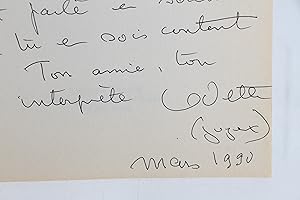 parlé e
tu e sois content
Ton amie, ton
interprète Odette
(Joyeux)
Mars 1990